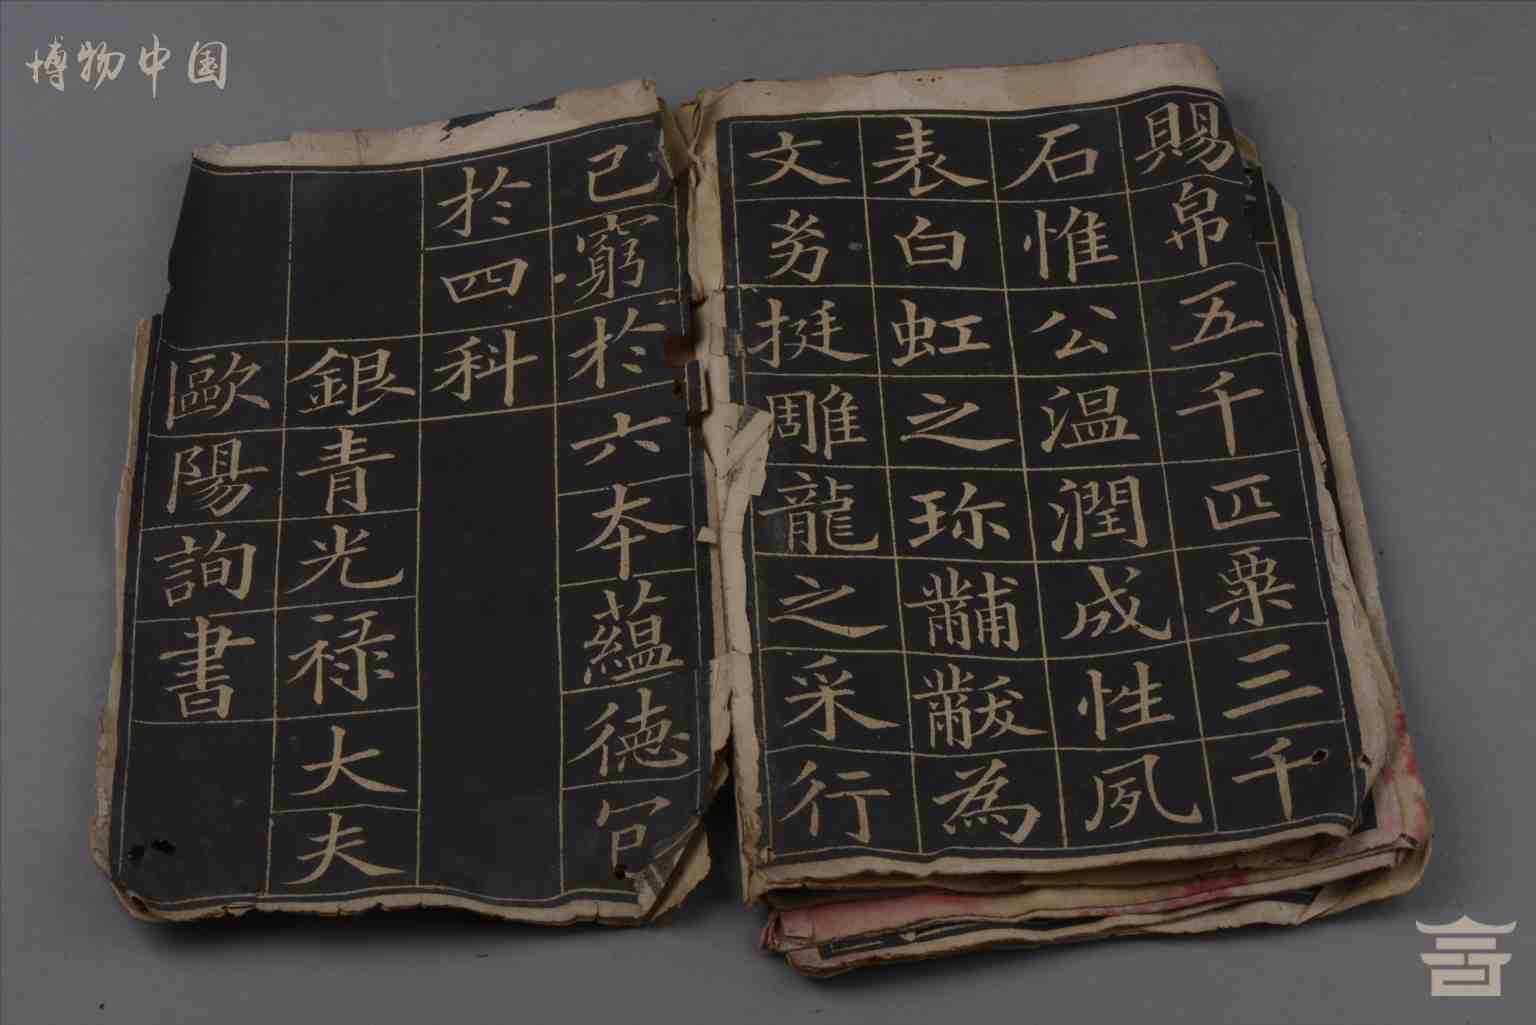 博物中国
賜帛五千匹粟三千
石惟公温潤成性夙
表白虹之珎黼黻為
文勞挺雕龍之采行
已窮於六本蘊德
於四科
銀青光禄大夫
歐陽詢書